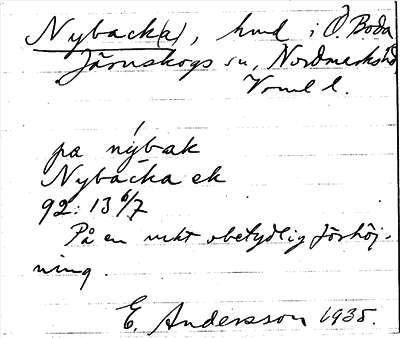 Nyback(a), hmd i Ö. Boda
Järnskogs sn, Nordmarks hd
Vrml l.
pa nýbak
Nybacka ek
92: 13 6/7
På en mkt obetydlig förhöj-
ning.
E. Andersson 1935.